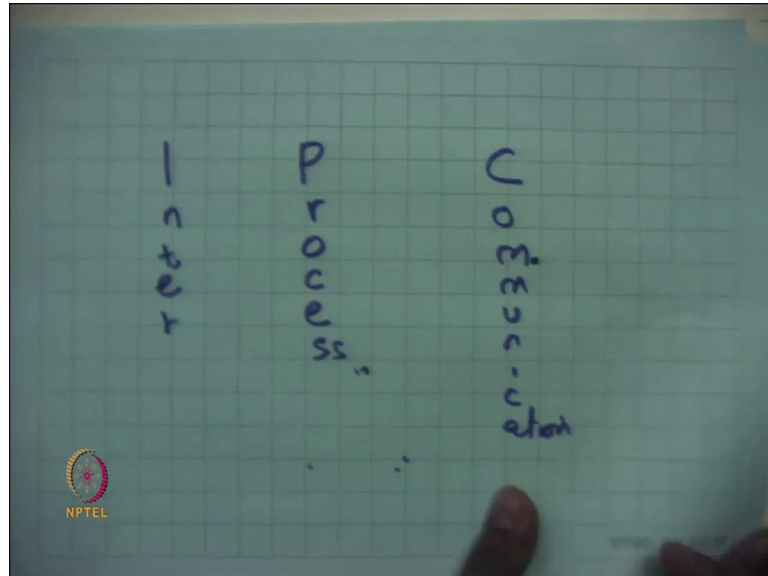 Inter
Process
Communication
NPTEL